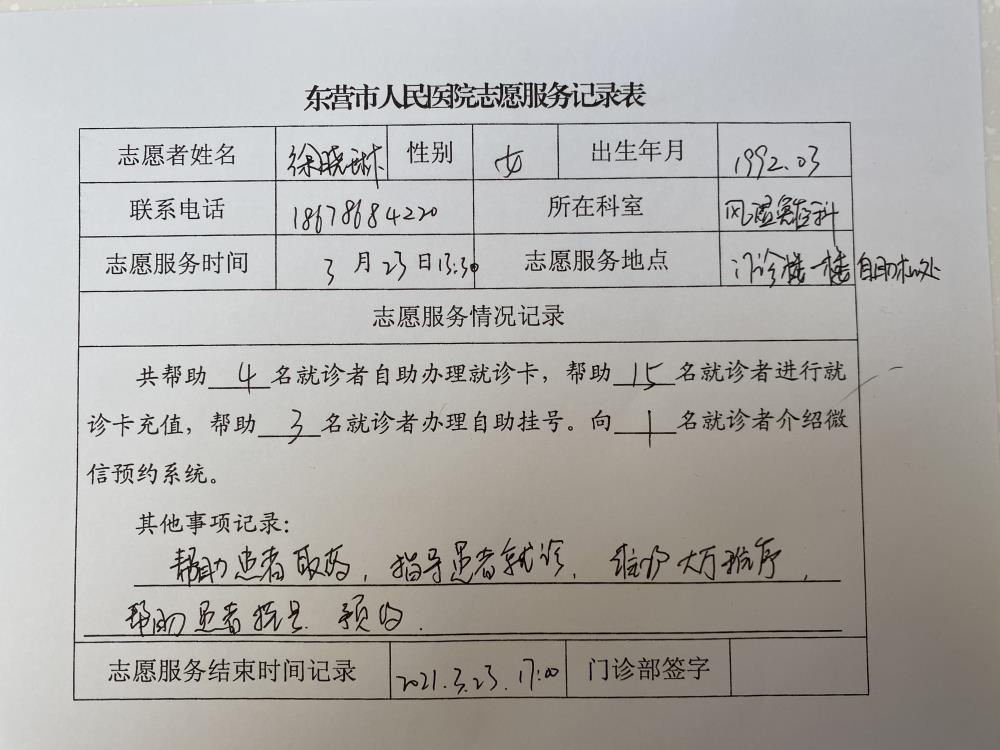 东营市人民医院志愿服务记录表
志愿者姓名 徐晓琳 性别 女 出生年月 1992.03
联系电话 18678684220 所在科室 风湿免疫科
志愿服务时间 3月23日13:30 志愿服务地点 门诊楼一楼自助机处
志愿服务情况记录
共帮助 4 名就诊者自助办理就诊卡，帮助 15 名就诊者进行就
诊卡充值，帮助 3 名就诊者办理自助挂号。向 1 名就诊者介绍微
信预约系统。
其他事项记录：
帮助患者取药，指导患者就诊，维护大厅秩序，
帮助患者挂号 预约.
志愿服务结束时间记录 2021.3.23.17:00 门诊部签字